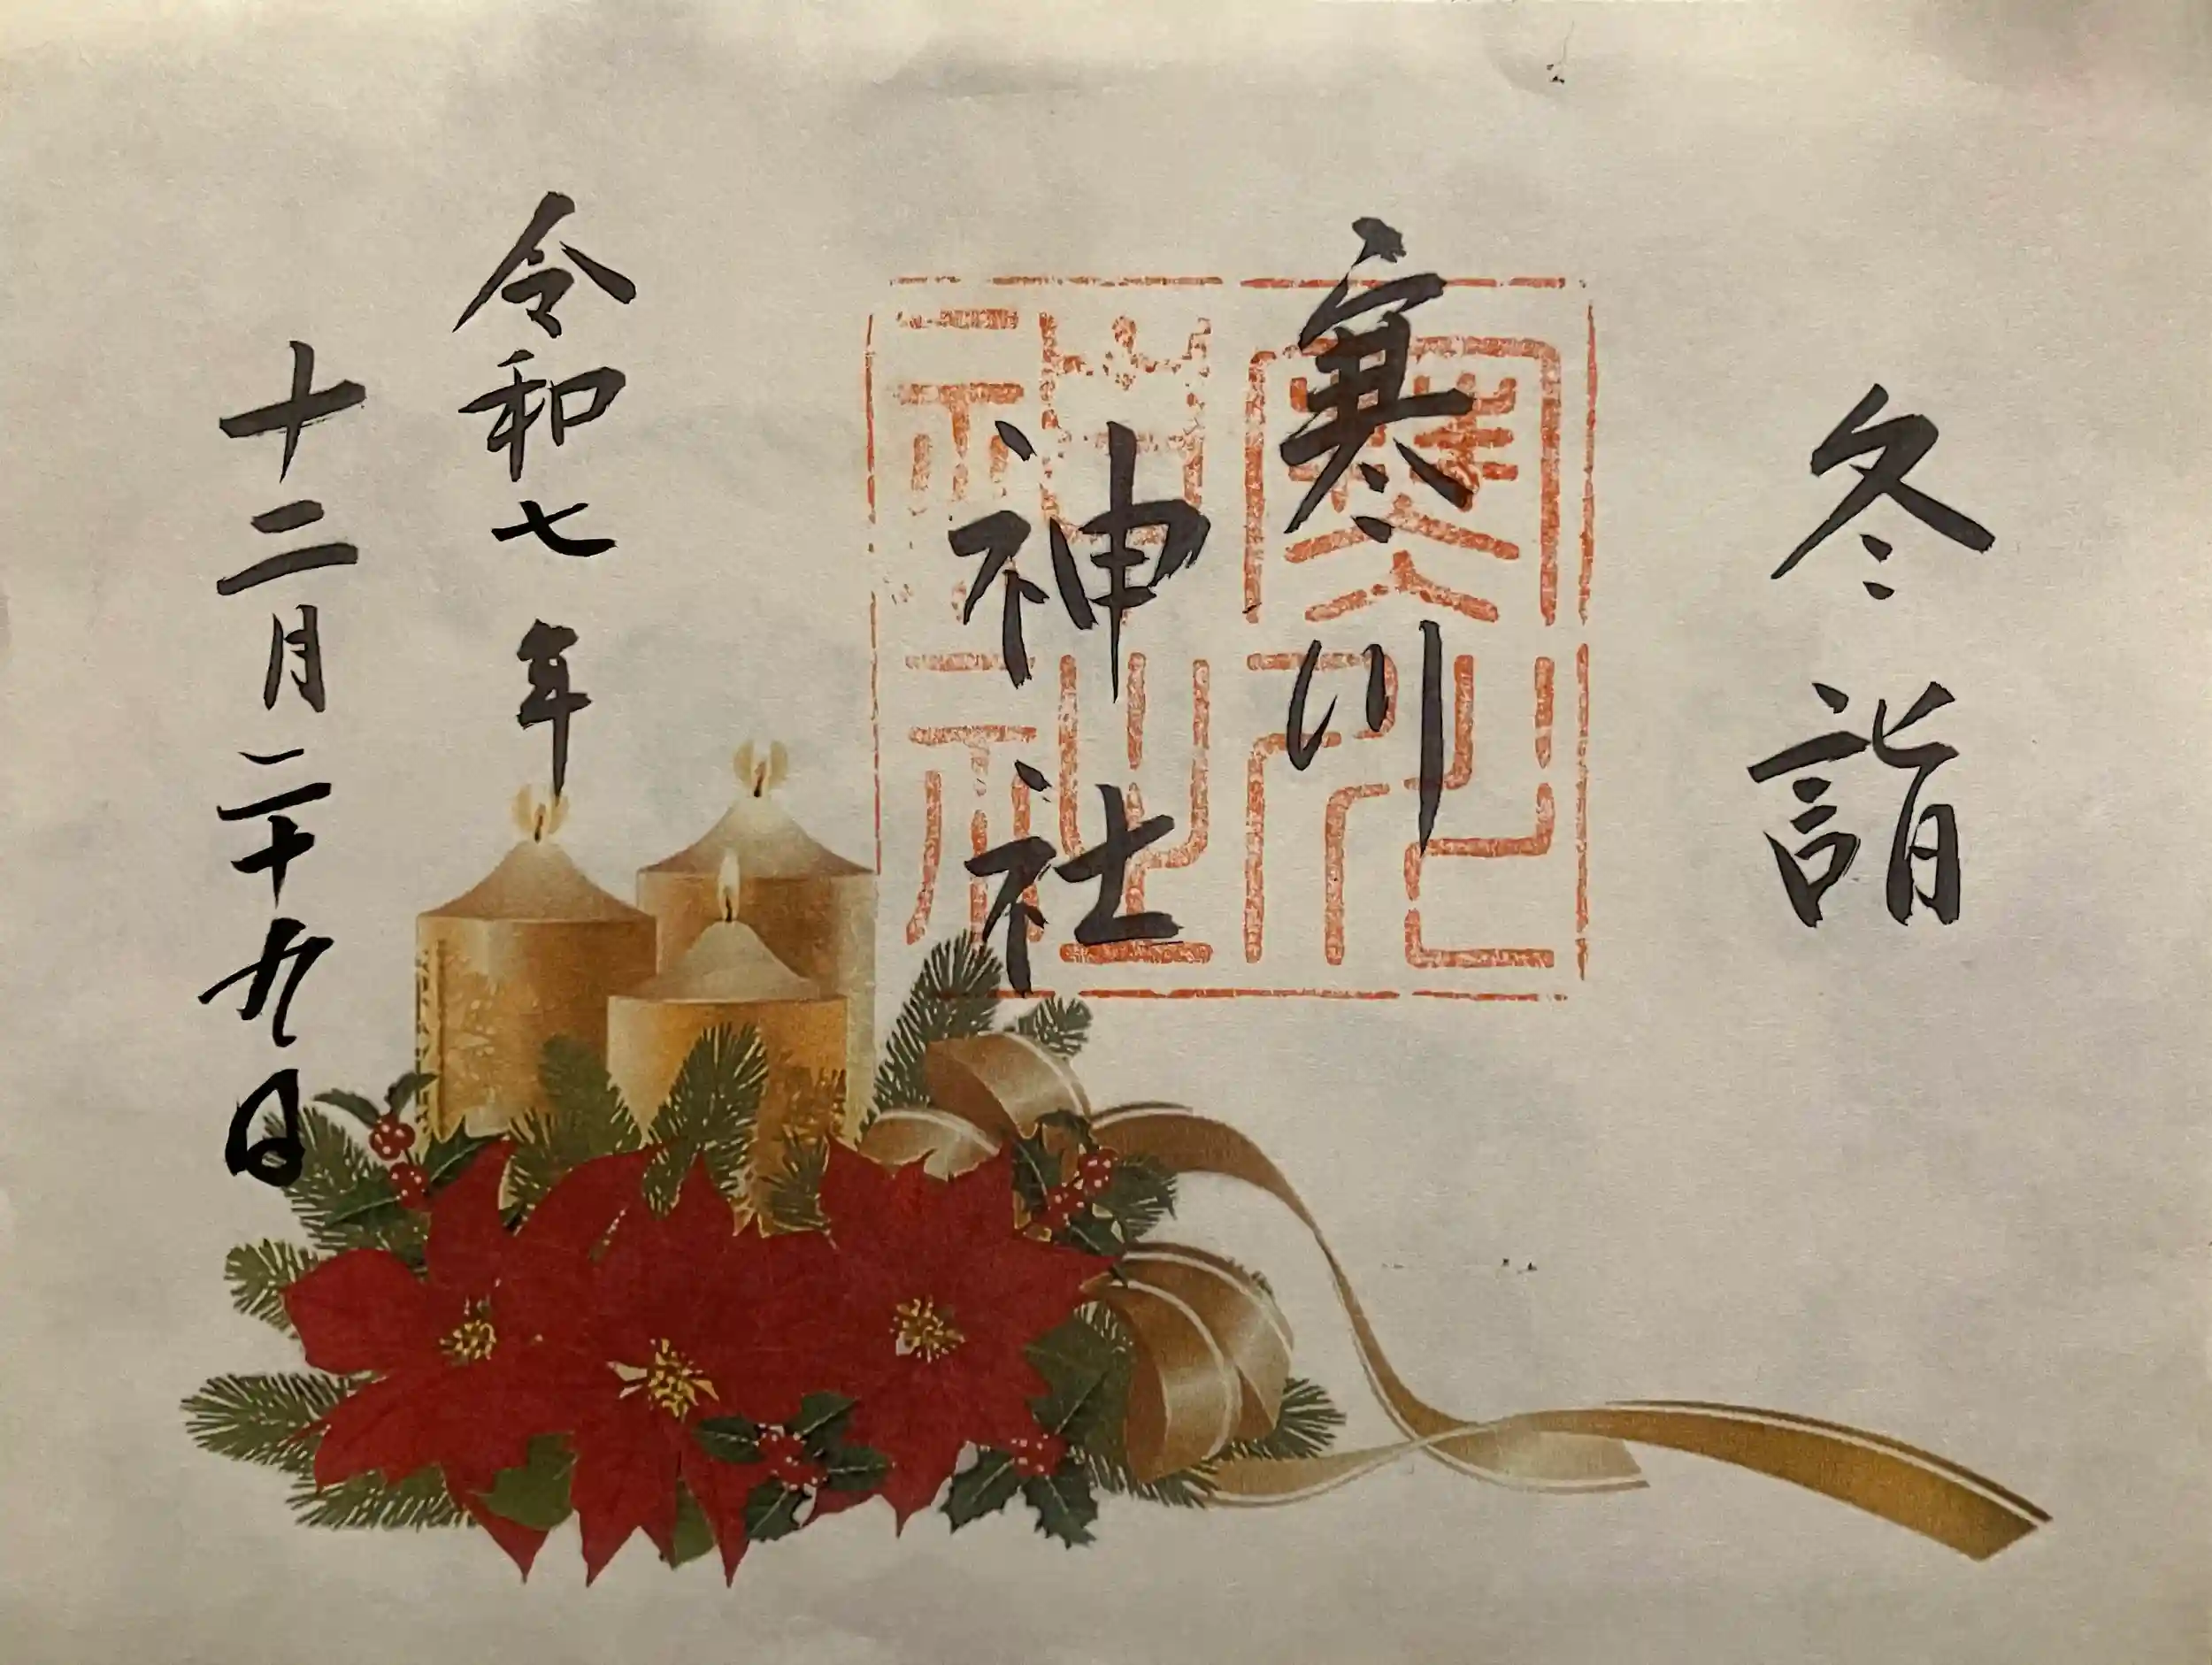 冬詣
寒川
神社
令和七年
十二月二十九日